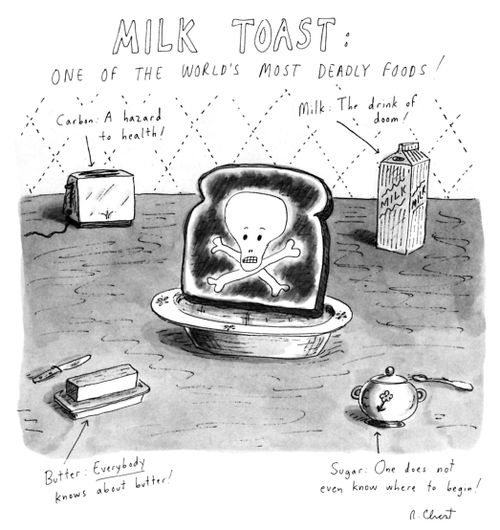 MILK TOAST:
ONE OF THE WORLD'S MOST DEADLY FOODS!
Carbon: A hazard
to health!
Milk: The drink of
doom!
MILK
MILK
Butter: Everybody
knows about butter!
Sugar: One does not
even know where to begin!
R. Chast